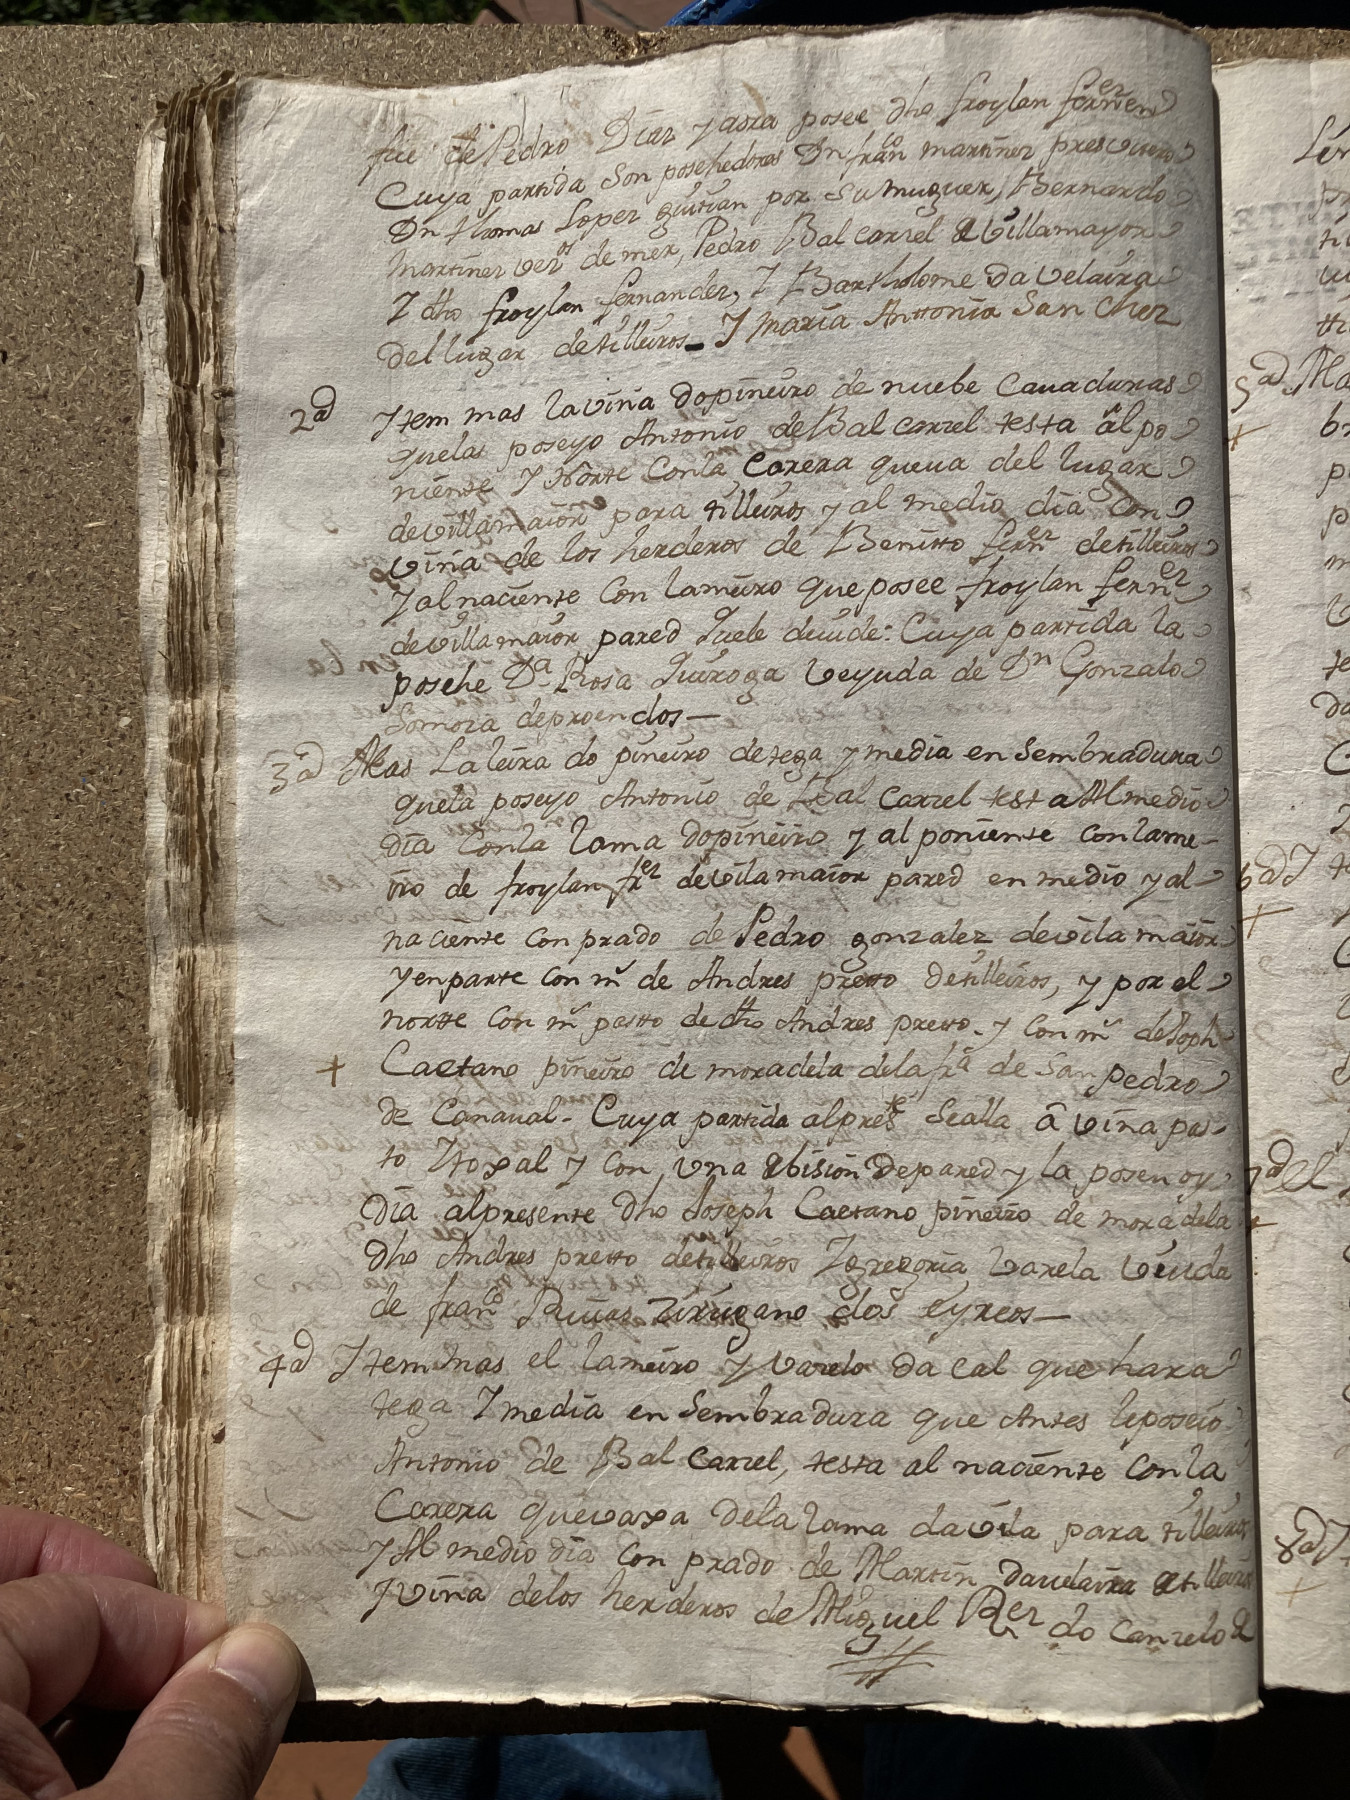 fue de Pedro Diaz y aora posee dho froylan fernez
Cuya partida Son posehedores Dn franco martinez presvitero
Dn thomas Lopez guitian por Su muguer, Bernardo
martinez veros de mer, Pedro Balcarzel de Villamayor
Y dho froylan fernandez, Y Bartholome Da velaira
Del lugar de tilleiros_ Y maria Anttonia San Chez
2ad Ytem mas la viña do piñeiro de nuebe Cauaduras
que las poseyo Antonio de Balcarzel testa al po
niente Y Norte Con la Carera que ua del lugar
de villamaior para tilleiros y al medio dia Con
viña de los herderos de Benitto fernz de tilleiros
Y al naciente Con lameiro que posee froylan fernez
de villamaior pared que le diuide: Cuya partida la
posehe Da Rosa Quiroga veyuda de Dn Gonzalo
Somoza de proendos—
3ad Mas La leira do piñeiro de tega y media en Sembradura
que la poseyo Antonio de Balcarzel testa Al medio
dia Con la lama do piñeiro y al poniente con lame-
iro de froylan frez de vilamaior pared en medio y al
naciente con prado de Pedro gonzalez de vilamaior
y en parte con mte de Andres pretto de tilleiros, y por el
nortte Con mte pasto de dho Andres pretto. y con mte de Joph
+ Caetano piñeiro de moradela de la fra de San pedro
de Canaual- Cuya partida al preste Se alla â viña pas-
to Y toxal y con una dibision de pared y la poseen oy
Dia al presente Dho Joseph Caetano piñeiro de moradela
Dho Andres pretto de tilleiros Y gregoria Varela Veuda
de franco Riuas Zirugano dos eyreos—
4ad Ytem mas el lameiro y varelo da cal que hara
tega Y media en Sembradura que Antes le poseio
Antonio de Balcarzel, testa al naciente Con la
Carera que vaxa De la lama da vila para tilleiros
y Al medio dia con prado de Martin da uelaira de tilleiros
Y viña de los herderos de Miguel Rez do Canzelo de